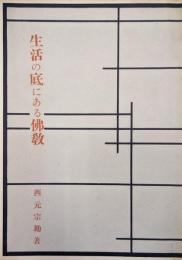 生活の底にある佛教
西元宗助著